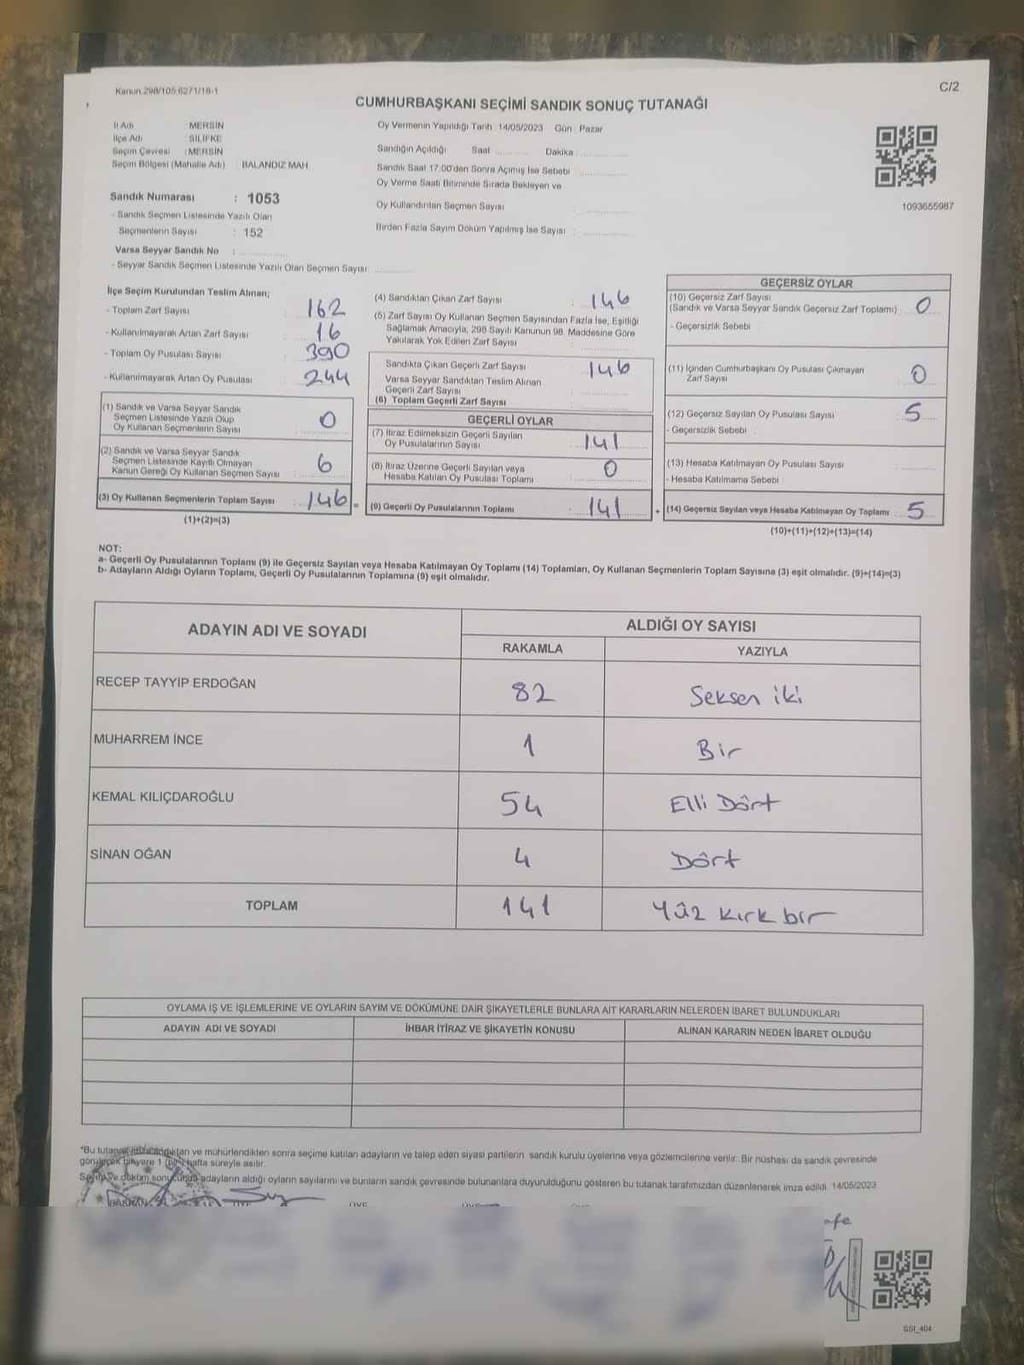 Kanun 298/105 6271/18-1
C/2
CUMHURBAŞKANI SEÇİMİ SANDIK SONUÇ TUTANAĞI
İl Adı : MERSİN
İlçe Adı : SİLİFKE
Seçim Çevresi : MERSİN
Seçim Bölgesi (Mahalle Adı) BALANDIZ MAH.
Sandık Numarası : 1053
- Sandık Seçmen Listesinde Yazılı Olan
Seçmenlerin Sayısı : 152
Varsa Seyyar Sandık No :
- Seyyar Sandık Seçmen Listesinde Yazılı Olan Seçmen Sayısı
Oy Vermenin Yapıldığı Tarih 14/05/2023 Gün : Pazar
Sandığın Açıldığı Saat Dakika
Sandık Saat 17:00'den Sonra Açımış İse Sebebi
Oy Verme Saati Bitiminde Sırada Bekleyen ve
Oy Kullandırılan Seçmen Sayısı
Birden Fazla Sayım Döküm Yapılmış İse Sayısı :
1093655987
İlçe Seçim Kurulundan Teslim Alınan;
- Toplam Zarf Sayısı 162
- Kullanılmayarak Artan Zarf Sayısı 16
- Toplam Oy Pusulası Sayısı 390
- Kullanılmayarak Artan Oy Pusulası 244
(1) Sandık ve Varsa Seyyar Sandık
Seçmen Listesinde Yazılı Olup
Oy Kullanan Seçmenlerin Sayısı 0
(2) Sandık ve Varsa Seyyar Sandık
Seçmen Listesinde Kayıtlı Olmayan
Kanun Gereği Oy Kullanan Seçmen Sayısı 6
(3) Oy Kullanan Seçmenlerin Toplam Sayısı 146 =
(1)+(2)=(3)
(4) Sandıktan Çıkan Zarf Sayısı : 146
(5) Zarf Sayısı Oy Kullanan Seçmen Sayısından Fazla İse, Eşitliği
Sağlamak Amacıyla, 298 Sayılı Kanunun 98. Maddesine Göre
Yakılarak Yok Edilen Zarf Sayısı
Sandıkta Çıkan Geçerli Zarf Sayısı : 146
Varsa Seyyar Sandıktan Teslim Alınan
Geçerli Zarf Sayısı
(6) Toplam Geçerli Zarf Sayısı
GEÇERLİ OYLAR
(7) İtiraz Edilmeksizin Geçerli Sayılan
Oy Pusulalarının Sayısı : 141
(8) İtiraz Üzerine Geçerli Sayılan veya
Hesaba Katılan Oy Pusulası Toplamı 0
(9) Geçerli Oy Pusulalarının Toplamı : 141 +
GEÇERSİZ OYLAR
(10) Geçersiz Zarf Sayısı
(Sandık ve Varsa Seyyar Sandık Geçersiz Zarf Toplamı) 0
- Geçersizlik Sebebi
(11) İçinden Cumhurbaşkanı Oy Pusulası Çıkmayan
Zarf Sayısı 0
(12) Geçersiz Sayılan Oy Pusulası Sayısı 5
- Geçersizlik Sebebi
(13) Hesaba Katılmayan Oy Pusulası Sayısı
- Hesaba Katılmama Sebebi
(14) Geçersiz Sayılan veya Hesaba Katılmayan Oy Toplamı 5
(10)+(11)+(12)+(13)=(14)
NOT:
a- Geçerli Oy Pusulalarının Toplamı (9) ile Geçersiz Sayılan veya Hesaba Katılmayan Oy Toplamı (14) Toplamları, Oy Kullanan Seçmenlerin Toplam Sayısına (3) eşit olmalıdır. (9)+(14)=(3)
b- Adayların Aldığı Oyların Toplamı, Geçerli Oy Pusulalarının Toplamına (9) eşit olmalıdır.
ADAYIN ADI VE SOYADI ALDIĞI OY SAYISI
RAKAMLA YAZIYLA
RECEP TAYYİP ERDOĞAN 82 Seksen iki
MUHARREM İNCE 1 Bir
KEMAL KILIÇDAROĞLU 54 Elli Dört
SİNAN OĞAN 4 Dört
TOPLAM 141 Yüz kırk bir
OYLAMA İŞ VE İŞLEMLERİNE VE OYLARIN SAYIM VE DÖKÜMÜNE DAİR ŞİKAYETLERLE BUNLARA AİT KARARLARIN NELERDEN İBARET BULUNDUKLARI
ADAYIN ADI VE SOYADI İHBAR İTİRAZ VE ŞİKAYETİN KONUSU ALINAN KARARIN NEDEN İBARET OLDUĞU
*Bu tutanak ve mühürlendikten sonra seçime katılan adayların ve talep eden siyasi partilerin sandık kurulu üyelerine veya gözlemcilerine verilir. Bir nüshası da sandık çevresinde
hafta süreyle asılır.
adayların aldığı oyların sayılarını ve bunların sandık çevresinde bulunanlara duyurulduğunu gösteren bu tutanak tarafımızdan düzenlenerek imza edildi. 14/05/2023
BAŞKAN
GSI_404